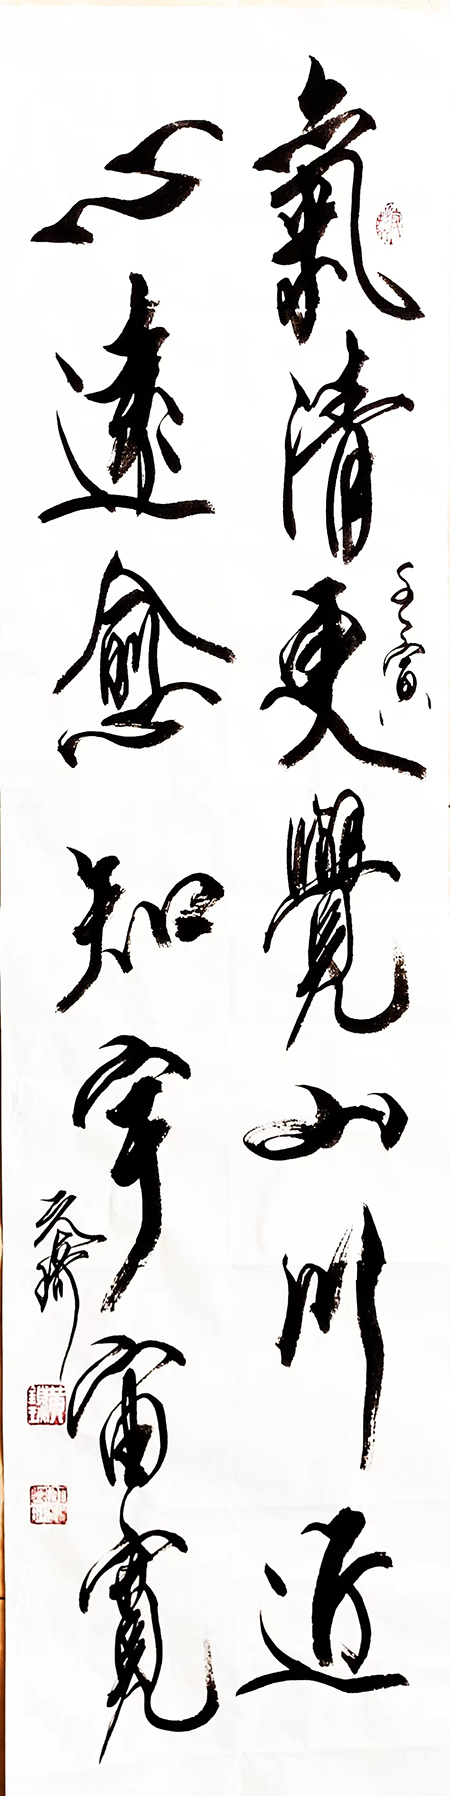 氣清更覺山川近
壬寅
心遠愈知宇宙寬